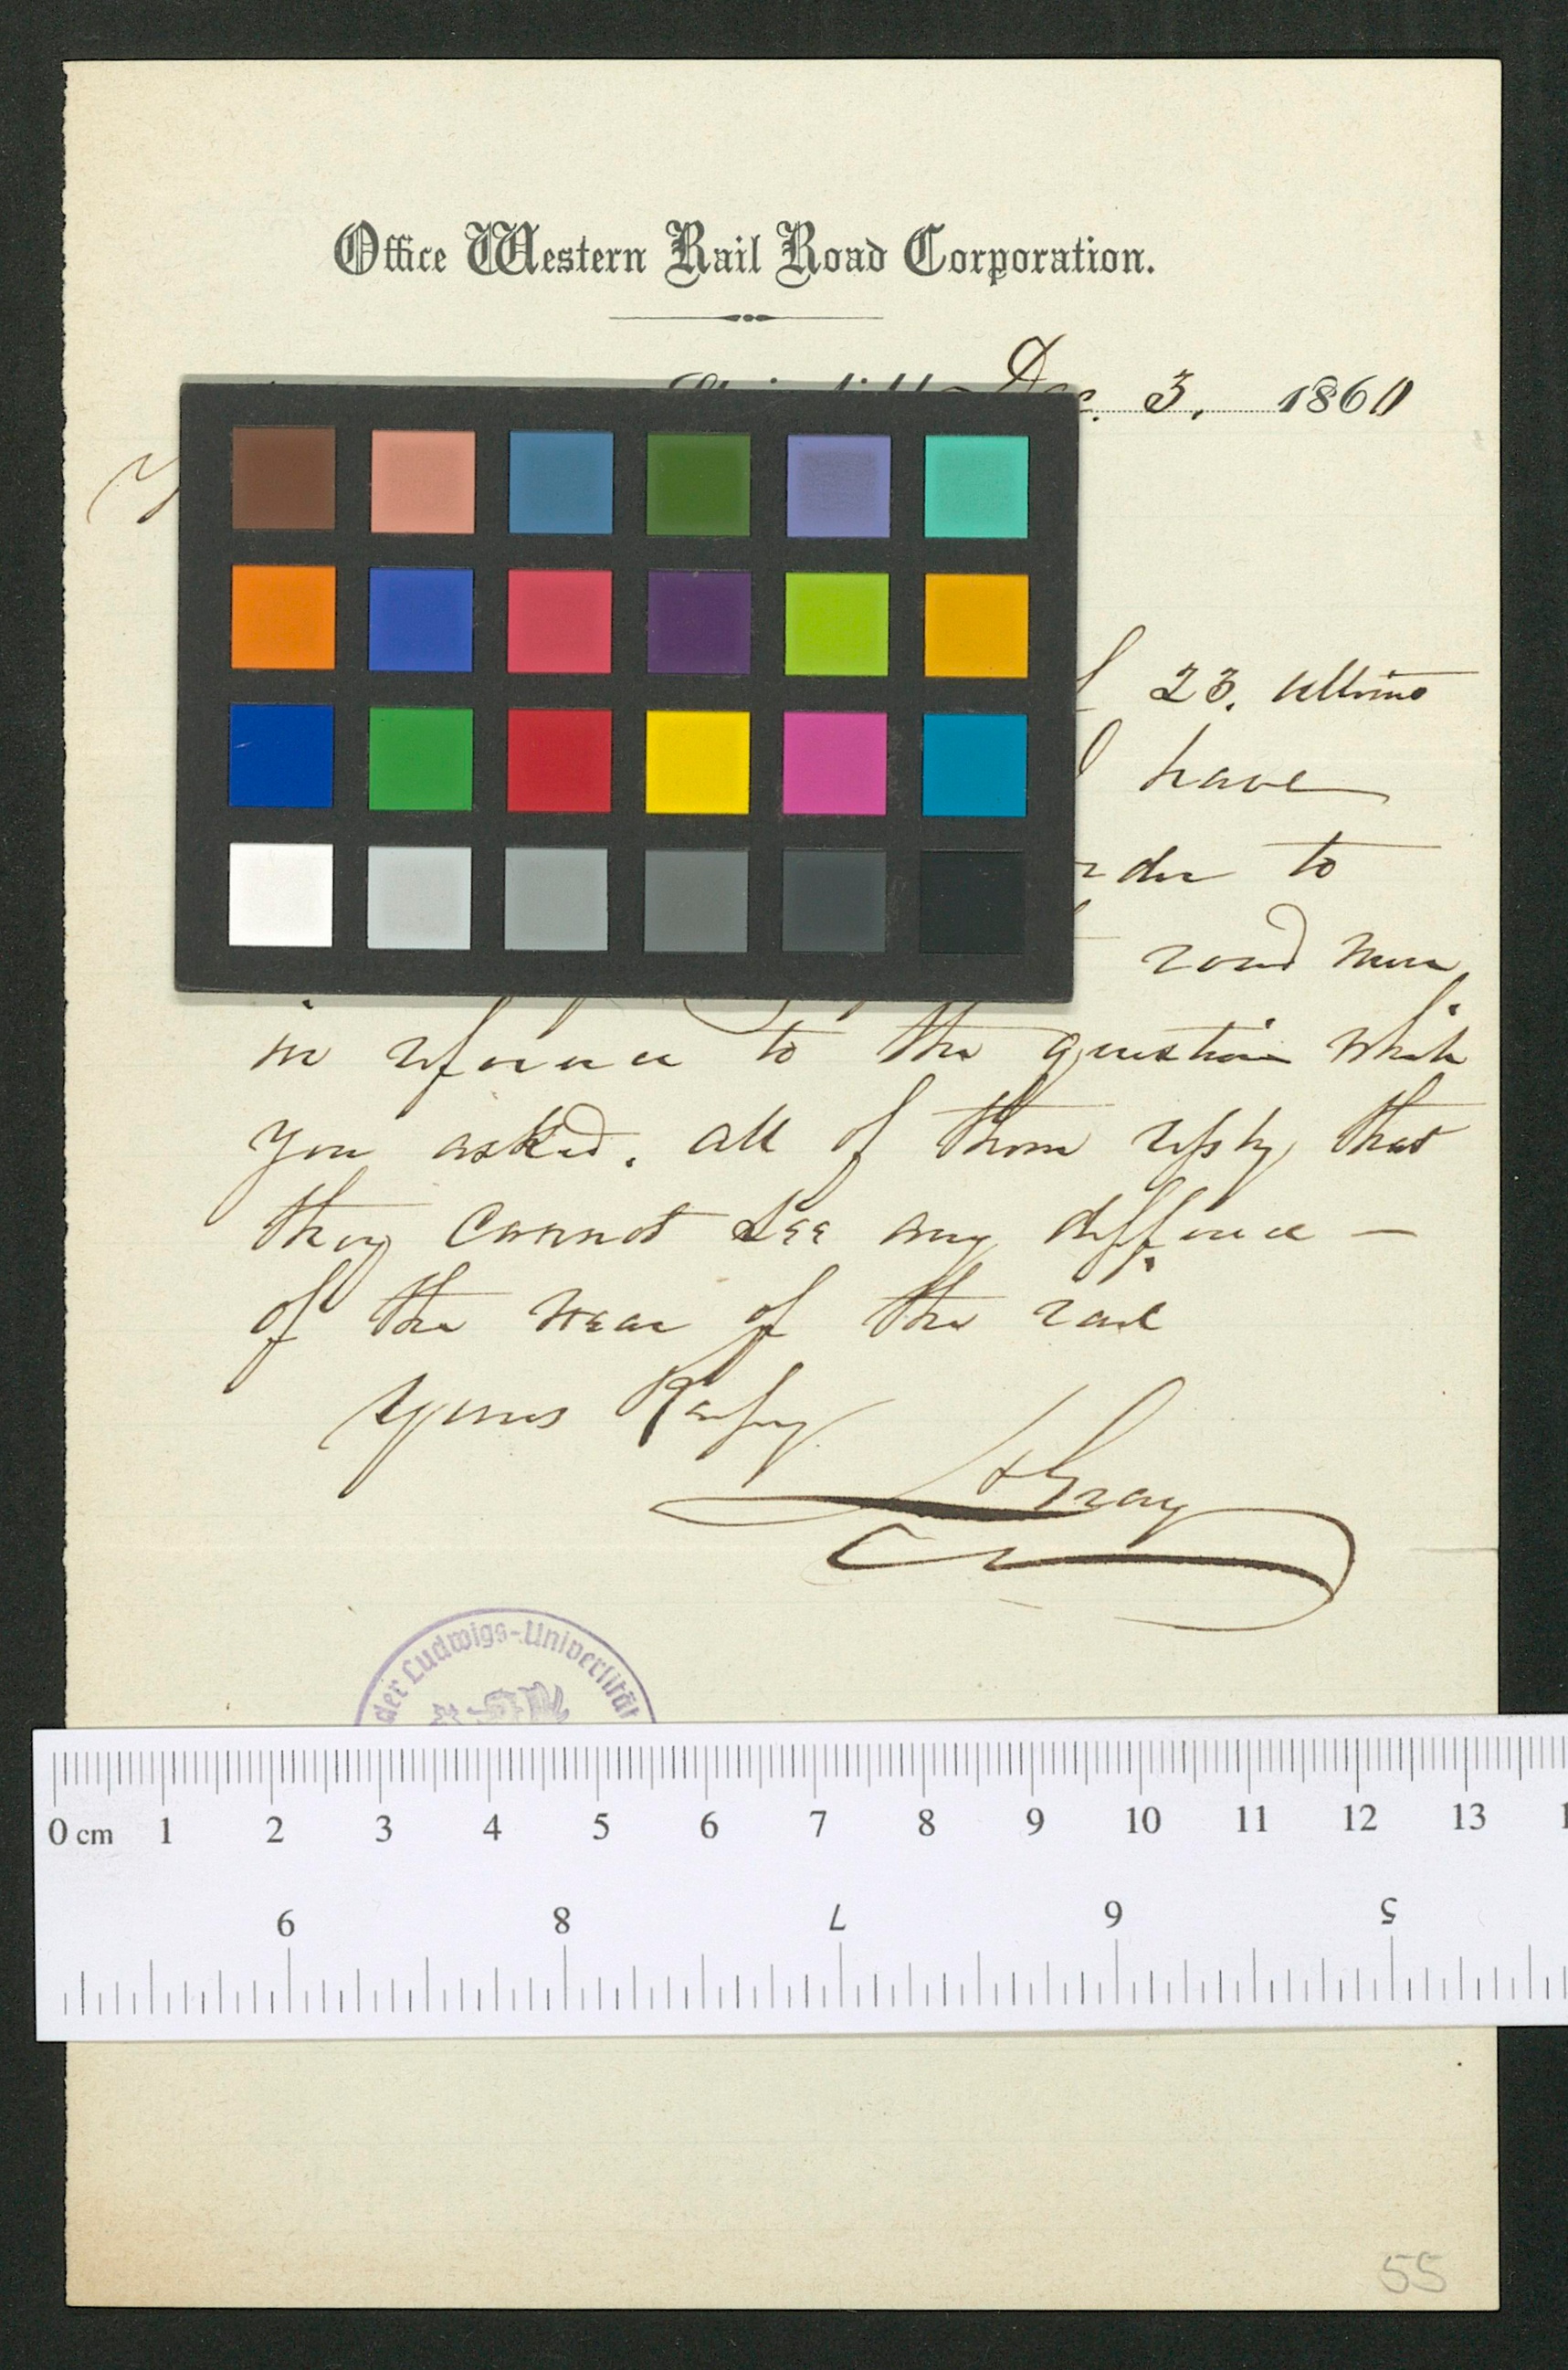 Office Western Rail Road Corporation.
Dec. 3, 1860
23. ultimo
have
to
road men
in reference to the question which
you asked. all of them reply that
they cannot see any difference —
of the wear of the rail
yours
Gray
der Ludwigs-Universität
0 cm 1 2 3 4 5 6 7 8 9 10 11 12 13
9 8 7 6 5
55